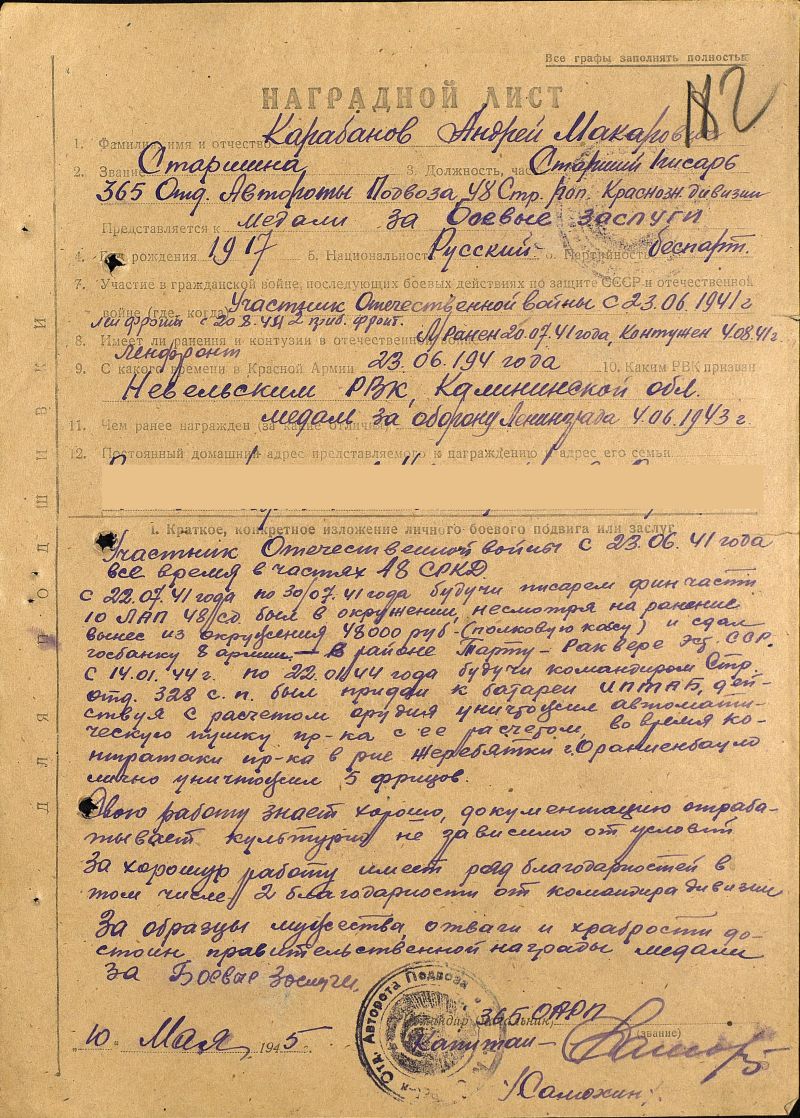 Все графы заполнять полностью
112
НАГРАДНОЙ ЛИСТ
1. Фамилия, имя и отчество Карабанов Андрей Макарович
2. Звание Старшина 3. Должность, часть Старший писарь
365 Отд. Автороты Подвоза 48 Стр. Роп. Краснозн. дивизии
Представляется к медали за Боевые заслуги
4. Год рождения 1917 5. Национальность Русский 6. Партийность беспарт.
7. Участие в гражданской войне, последующих боевых действиях по защите СССР и отечественной
войне (где, когда) Участник Отечественной войны с 23.06.1941 г
Лен фронт с 20.8.41 2 приб. фронт.
8. Имеет ли ранения и контузии в отечественной войне Ранен 20.07.41 года, Контужен 4.08.41 г.
Ленфронт
9. С какого времени в Красной Армии 23.06.194 года 10. Каким РВК призван
Невельским РВК, Калининской обл.
11. Чем ранее награжден (за какие отличия) медал за оборону Ленинграда 4.06.1943 г.
12. Постоянный домашний адрес представляемого к награждению и адрес его семьи
I. Краткое, конкретное изложение личного боевого подвига или заслуг
Участник Отечественной войны с 23.06.41 года
все время в частях 48 СРКД.
с 22.07.41 года по 30/07.41 года будучи писарем финчасти
10 ЛАП 48/сд. был в окружении, несмотря на ранение
вынес из окружения 48000 руб. (полковую кассу) и сдал
госбанку 8 армии. – в районе Тарту – Раквере Эст. ССР.
С 14.01.44 г. по 22.01.44 года будучи командиром Стр.
отд. 328 с.п. был придан к батареи ИПТАБ, дей-
ствуя с расчетом орудия уничтожил автомати-
ческую пушку пр-ка с ее расчетом, во время ко-
нтратаки пр-ка в рне Жеребятки г. Ораниенбаум
лично уничтожил 5 фрицов.
Свою работу знает хорошо, документацию отраба-
тывает культурно не зависимо от условий
За хорошую работу имеет ряд благодарностей в
том числе 2 благодарности от командира дивизии
За образцы мужества, отваги и храбрости до-
стоин правительственной награды медали
за Боевые Заслуги.
Командир (начальник) 365 ОАРП
Отд. Авторота Подвоза
„10“ Мая 1945 г. Капитан – (звание)
/Самохин/
ДЛЯ ПОДШИВКИ